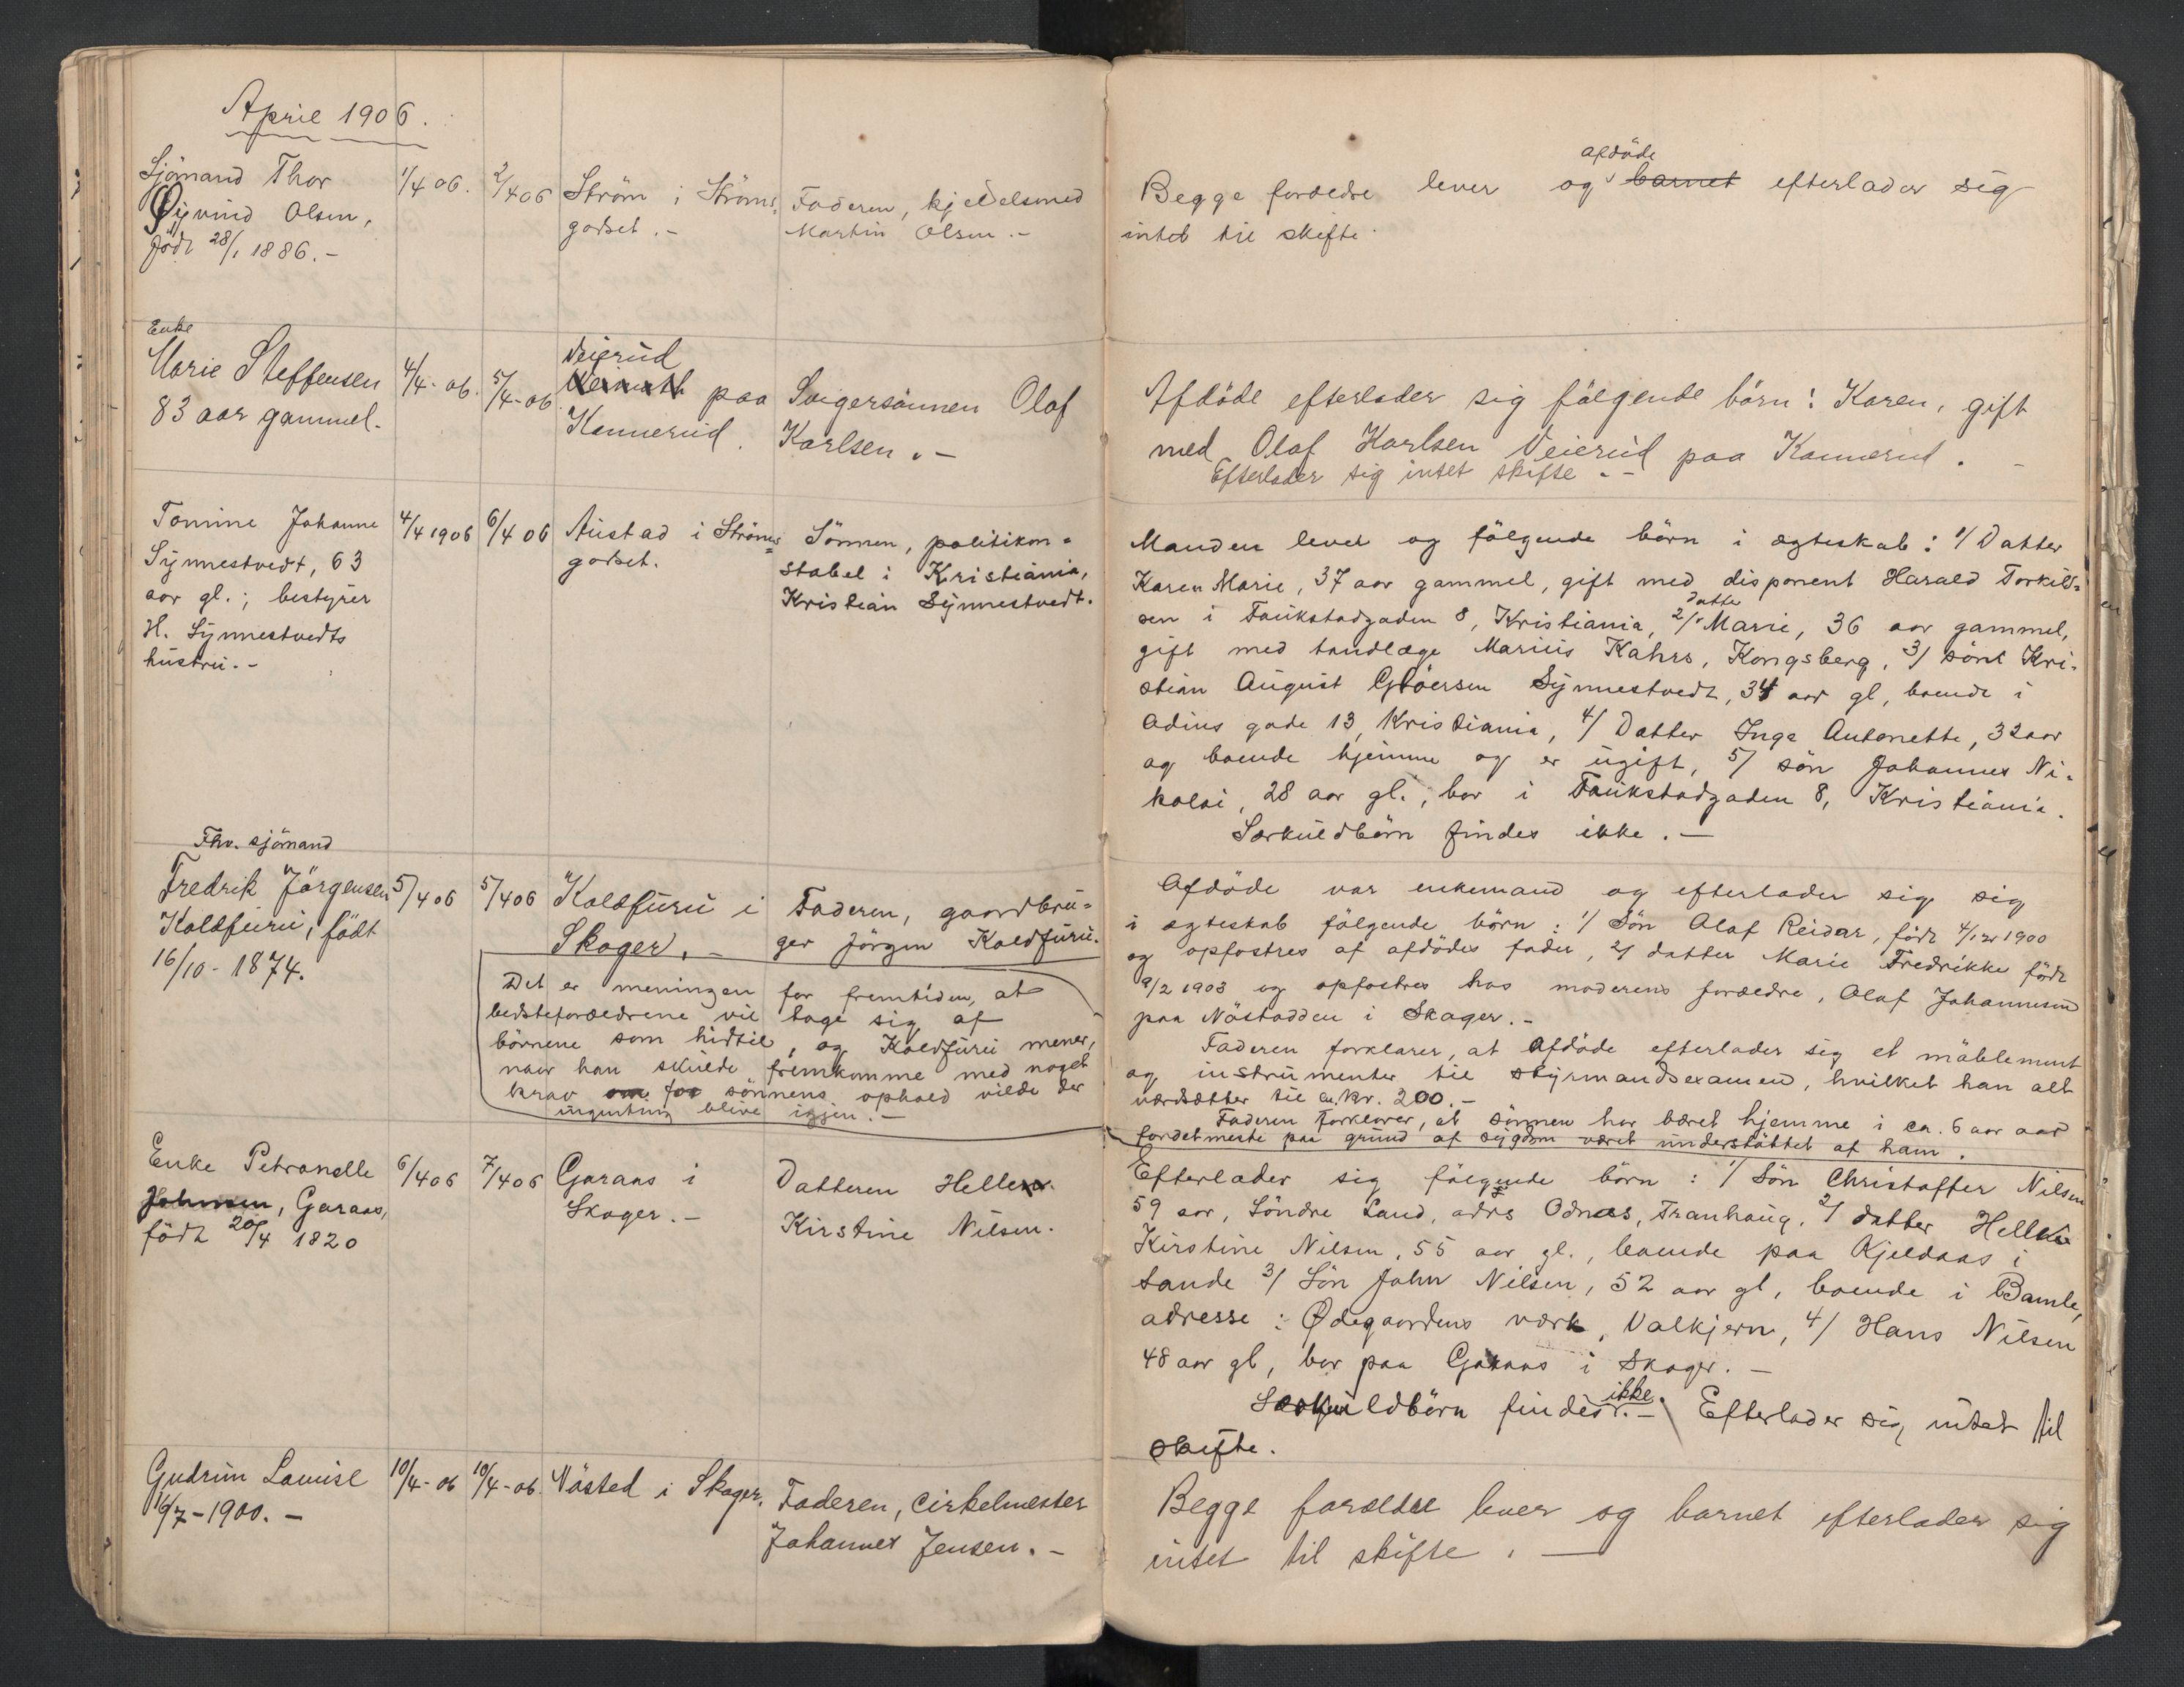 April 1906.
Sjömand Thor
Öyvind Olsen,
född 28/1 1886.-
1/4 06.
2/4 06
Ström i Ströms-
godset.-
Faderen, kjedelsmed
Martin Olsen.-
afdöde
Begge forældre lever og barnet efterlader sig
intet til skifte.
Enke
Marie Steffensen
83 aar gammel.
4/4-06.
5/4-06
Veierud
paa
Kannerud.
Svigersönnen Olaf
Karlsen.-
Afdöde efterlader sig fölgende börn: Karen, gift
med Olaf Karlsen Veierud paa Kannerud.-
Efterlader sig intet skifte.-
Tomine Johanne
Synnestvedt, 63
aar gl.; bestyrer
H. Synnestvedts
hustru.-
4/4 1906
6/4 06
Austad i Ströms=
godset.
Sönnen, politikon=
stabel i Kristiania,
Kristian Synnestvedt.
Manden lever og fölgende börn i ægteskab: 1/ Datter
Karen Marie, 37 aar gammel, gift med disponent Harald Torkild=
datter
sen i Faukstadgaden 8, Kristiania, 2/ Marie, 36 aar gammel,
gift med tandlæge Marius Kahrs, Kongsberg, 3/ sönl Kri=
stian August Glöersen Synnestvedt, 34 aar gl, boende i
Odins gade 13, Kristiania, 4/ Datter Inga Antonette, 32 aar
og boende hjemme og er ugift, 5/ sön Johannes Ni=
kolai, 28 aar gl., bor i Faukstadgaden 8, Kristiania.
Særkuldbörn findes ikke.-
Fhv. sjömand
Fredrik Jörgensen
Koldfuru, född
16/10-1874.
5/4 06
5/4 06
Koldfuru i
Skoger.-
Faderen, gaardbru=
ger Jörgen Koldfuru.
Det er meningen for fremtiden, at
bedsteforældrene vil tage sig af
börnene som hidtil, og Koldfuru mener,
naar han skulde fremkomme med noget
krav om for sönnens ophold vilde der
ingenting blive igjen.-
Afdöde var enkemand og efterlader sig sig
i ægteskab fölgende börn: 1/ Sön Olaf Reidar, född 4/12 1900
og opfostres af afdödes fader, 2/ datter Marie Fredrikke född
9/2 1903 og opfostres hos moderens forældre, Olaf Johannesen
paa Nöstodden i Skoger.-
Faderen forklarer, at afdöde efterlader sig et möblement
og instrumenter til styrmandsexamen, hvilket han alt
værdsætter til ca. kr. 200.-
Faderen forklarer, at sönnen har været hjemme i ca. 6 aar aar
fordetmeste paa grund af sygdom været understöttet af ham.
Enke Petronelle
Johnsen, Garaas,
född 20/4 1820
6/4 06
7/4 06
Garaas i
Skoger.-
Datteren Helle
Kirstine Nilsen.
Efterlader sig fölgende börn: 1/ Sön Christoffer Nilsen
59 aar, Söndre Land, adrs Odnes, Tranhaug, 2/ datter Helle
Kirstine Nilsen, 55 aar gl., boende paa Kjeldaas i
Sande 3/ Sön John Nilsen, 52 aar gl, boende i Bamle,
adresse: Ødegaardens værk, Valkjern, 4/ Hans Nilsen
48 aar gl, bor paa Garaas i Skoger.-
ikke
Særkuldbörn findes.- Efterlader sig intet til
skifte.
Gudrun Louise
16/7-1900.-
10/4-06
10/4-06.
Nösted i Skoger.
Faderen, cirkelmester
Johannes Jensen.-
Begge forældre lever og barnet efterlader sig
intet til skifte.-